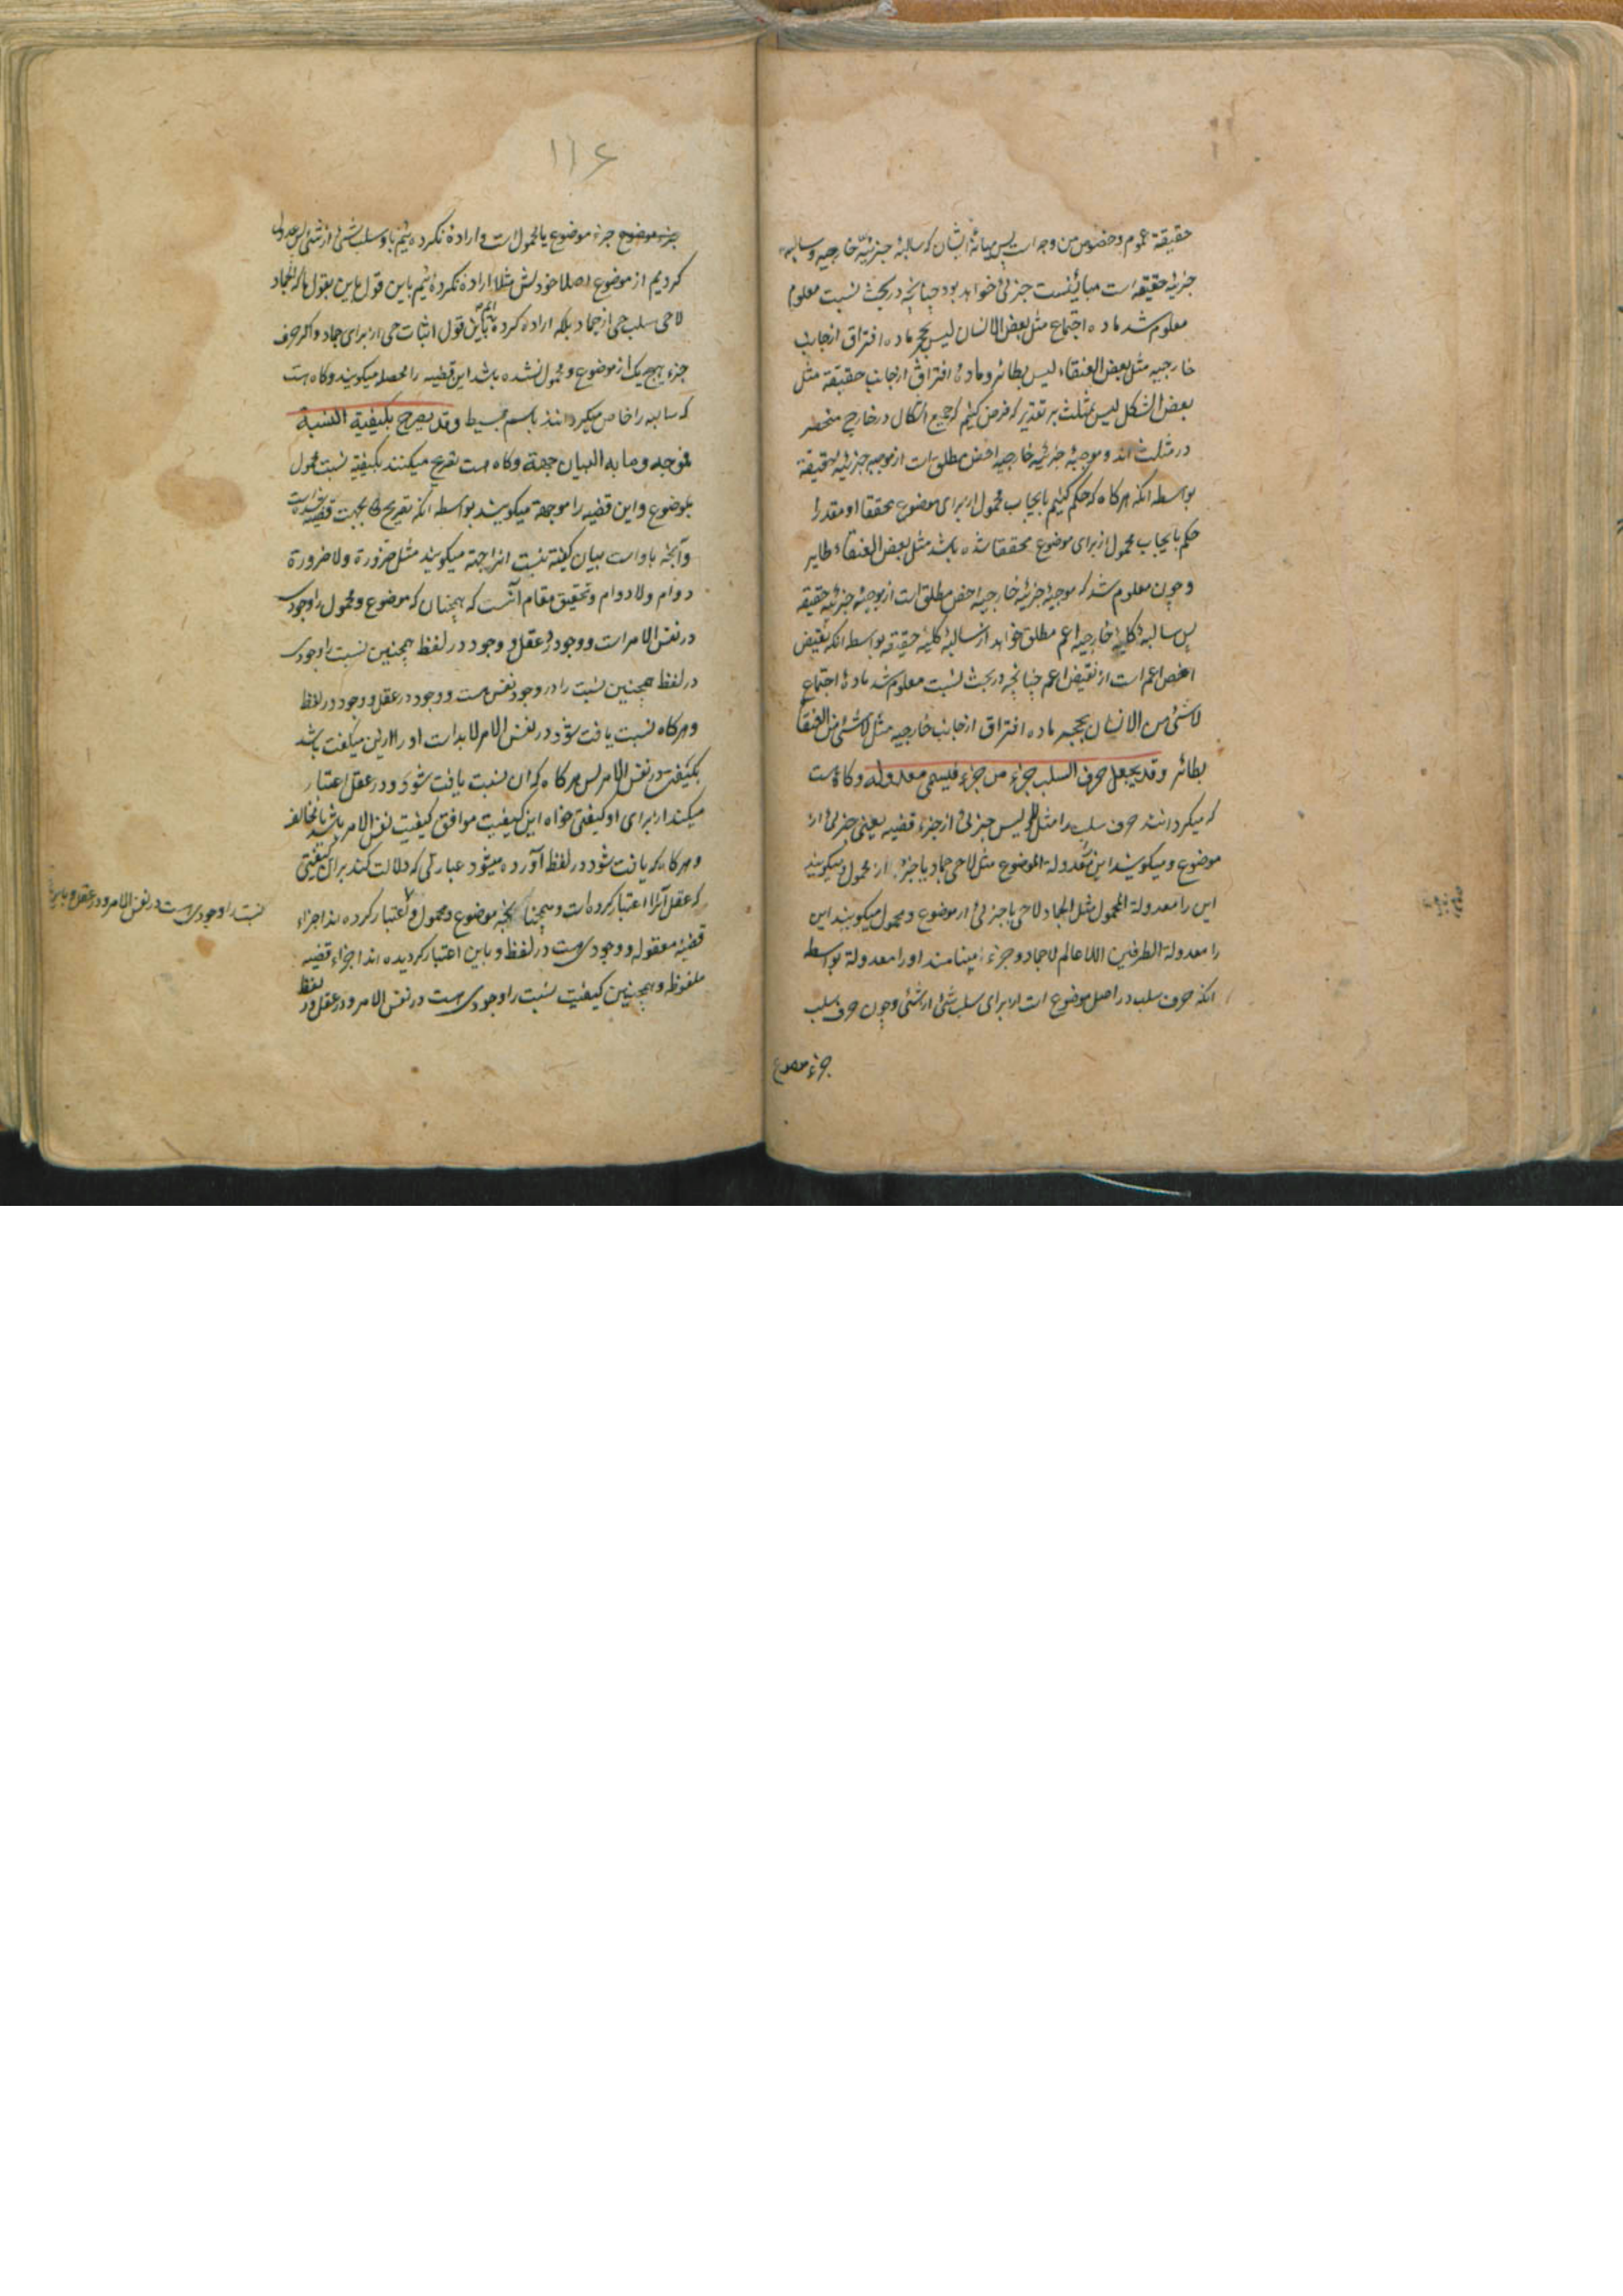 حقیقة عموم و خصوص من وجه است پس میانهٔ ایشان که سالبهٔ جزئیهٔ خارجیه و سالبهٔ
جزئیه حقیقه است مبائنست جزئی خواهد بود چنانچه در بحث نسبت معلوم
معلوم شد ماده اجتماع مثل بعض الانسان لیس بحجر ماده افتراق از جانب
خارجیه مثل بعض العنقاء لیس بطائر و مادهٔ افتراق از جانب حقیقة مثل
بعض الشکل لیس بمثلث بر تقدیر که فرض کنیم که جمیع اشکال در خارج منحصر
در مثلث اند و موجبهٔ جزئیه خارجیه اخص مطلق است از موجبه جزئیه حقیقة
بواسطه انکه هرکاه که حکم کنیم بایجاب محمول از برای موضوع محققا او مقدرا
حکم بایجاب محمول از برای موضوع محققا شده باشد مثل بعض العنقاء طایر
و چون معلوم شد که موجبهٔ جزئیه خارجیه اخص مطلق است از موجبهٔ جزئیه حقیقه
پس سالبهٔ کلیهٔ خارجیه اعم مطلق خواهد از سالبهٔ کلیهٔ حقیقه بواسطه انکه نقیض
اخص اعم است از نقیض اعم چنانچه در بحث نسبت معلوم شد مادهٔ اجتماع
لاشئ من الانسان بحجر ماده افتراق از جانب خارجیه مثل لاشئ من العنقا
بطائر وقد یجعل حرف السلب جزء من جزء فیسمی معدوله و کاه است
که میکردانند حرف سلب را مثل لیس جزئی از جزء قضیه یعنی جزئی از
موضوع و میکویند این معدولة الموضوع مثل لاحی جماد یا جزء از محمول و میکویند
این را معدولة المحمول مثل الجماد لاحی یا جزئی از موضوع و محمول میکویند این
را معدولة الطرفین اللاعالم لاجماد و جزء مینامند او را معدولة بواسطه
انکه حرف سلب در اصل موضوع است از برای سلب شئ از شئ و چون حرف سلب
جزء موضوع
۱۱۶
جزء موضوع جزء موضوع یا محمول است و اراده نکرده ئیم باو سلب شئ از شئ پس عدول
کردیم از موضوع اصلا خودش مثلا اراده نکرده ئیم باین قول الجماد
لاحی سلب حی از جماد بلکه اراده کرده ائیم باین قول اثبات حی از برای جماد و اکر حرف
جزء هیچ یک از موضوع و محمول نشده باشد این قضیه را محصله میکویند و کاه است
که سالبه را خاص میکردانند باسم بسیط وقد یصرح بکیفیة النسبة
فموجه وما به البیان جهة و کاه است تصریح میکنند بکیفیة نسبت محمول
بموضوع و این قضیه را موجهة میکویند بواسطه انکه تصریح بجهت قضیه شده است
و آنچه باو است بیان کیفیة نسبت انرا جهة میکویند مثل ضرورة و لاضرورة
دوام و لادوام و تحقیق مقام آنست که همچنان که موضوع و محمول را وجودی
در نفس الامر است و وجود در عقل و وجود در لفظ همچنین نسبت را وجودی
در لفظ همچنین نسبت را در وجود نفس هست و وجود در عقل و وجود در لفظ
و هرکاه نسبت یافت شود در نفس الامر لابد است او را از این میکیفت باشد
بکیفیت در نفس الامر پس هرکاه که ان نسبت یافت شود و در عقل اعتبار
میکند از برای او کیفیتی خواه این کیفیت موافق کیفیت نفس الامر باشد یا مخالف
و هرکاه که یافت شود در لفظ آورده میشود عبارتی که دلالت کند بر آن کیفیتی
که عقل آنرا اعتبار کرده است و همچنانکه موضوع و محمول و اعتبار کرده اند اجزاء
قضیهٔ معقوله و وجودی هست در لفظ و باین اعتبار کردیده اند اجزاء قضیه
ملفوظه و همچنین کیفیت نسبت را وجودی هست در نفس الامر و در عقل و در لفظ
نسبت را وجودی هست در نفس الامر و در عقل و باین